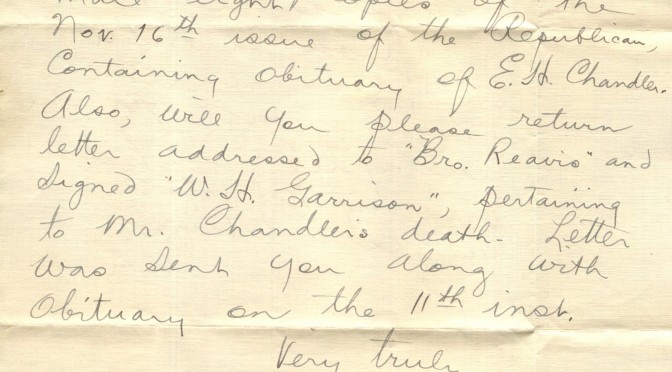 eight copies of the
Nov. 16th issue of the Republican,
Containing obituary of E. H. Chandler.
Also, will you please return
letter addressed to "Bro. Reavis" and
signed "W. H. Garrison", pertaining
to Mr. Chandler's death. Letter
was sent you along with
Obituary on the 11th inst.
Very truly